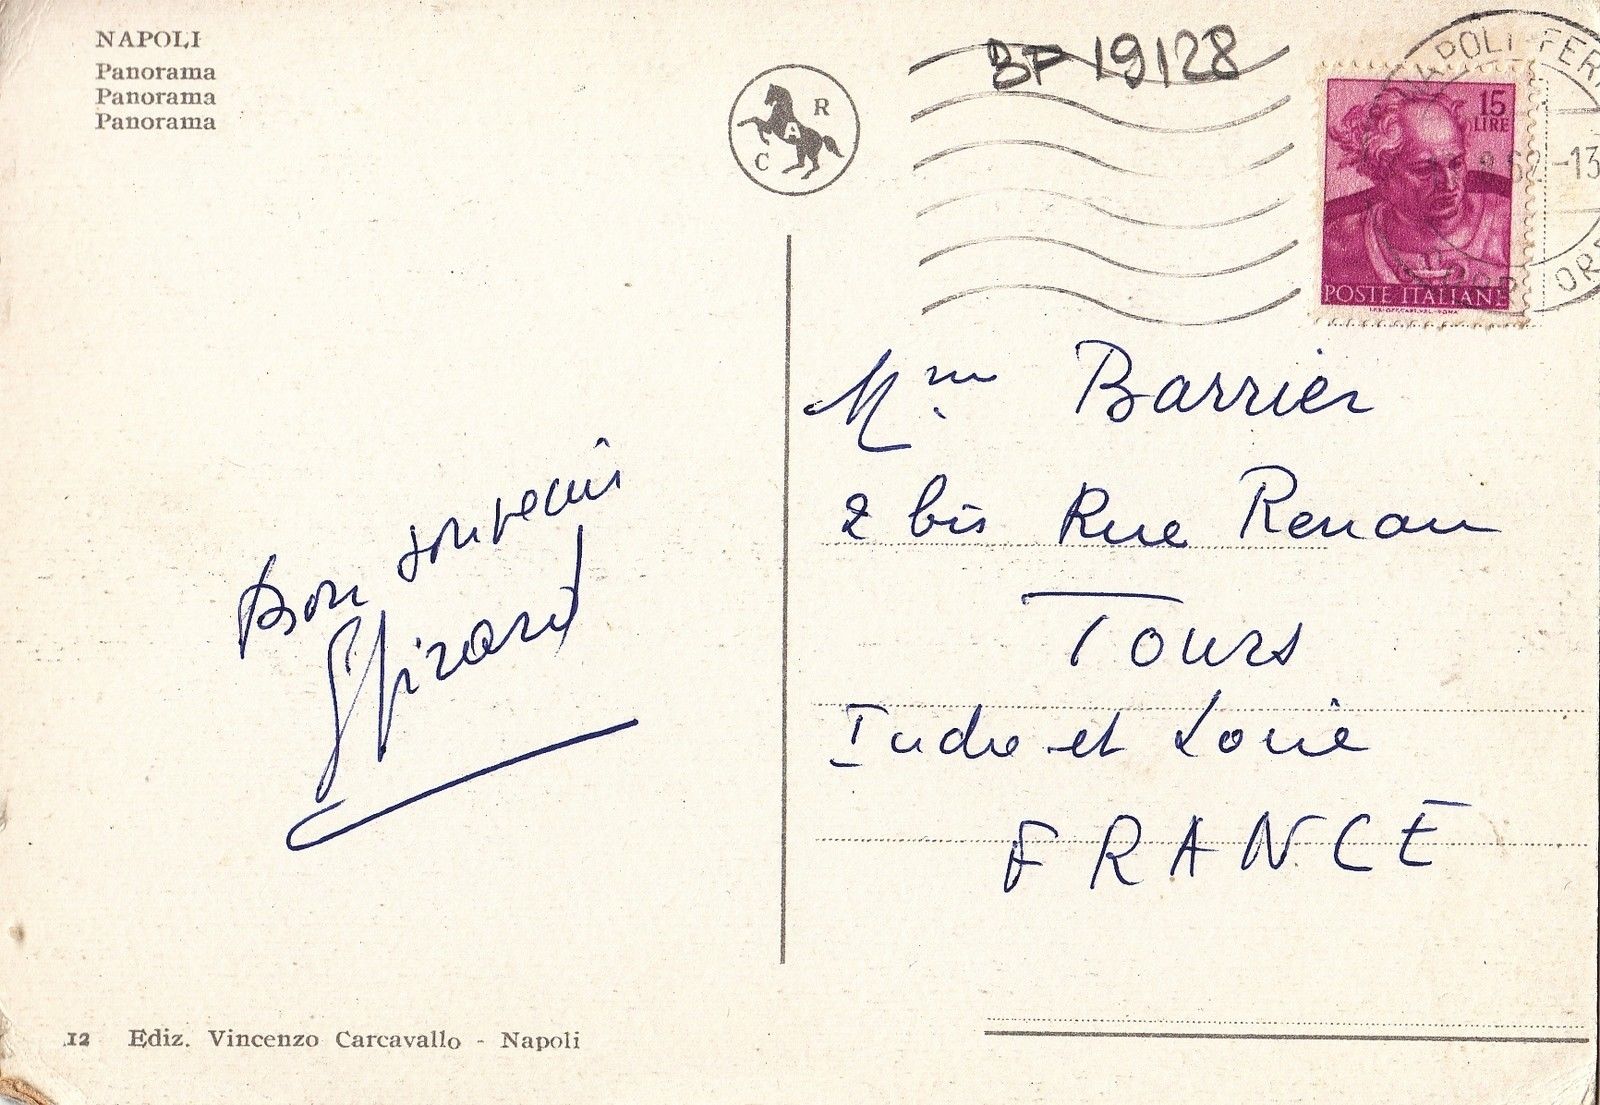 NAPOLI
Panorama
Panorama
Panorama
C A R
BP 19128
15
LIRE
POSTE ITALIANE
NAPOLI FERR
62-13
Bon souvenir
Mme Barrier
2 bis Rue Renan
Tours
Indre et Loire
FRANCE
12 Ediz. Vincenzo Carcavallo - Napoli